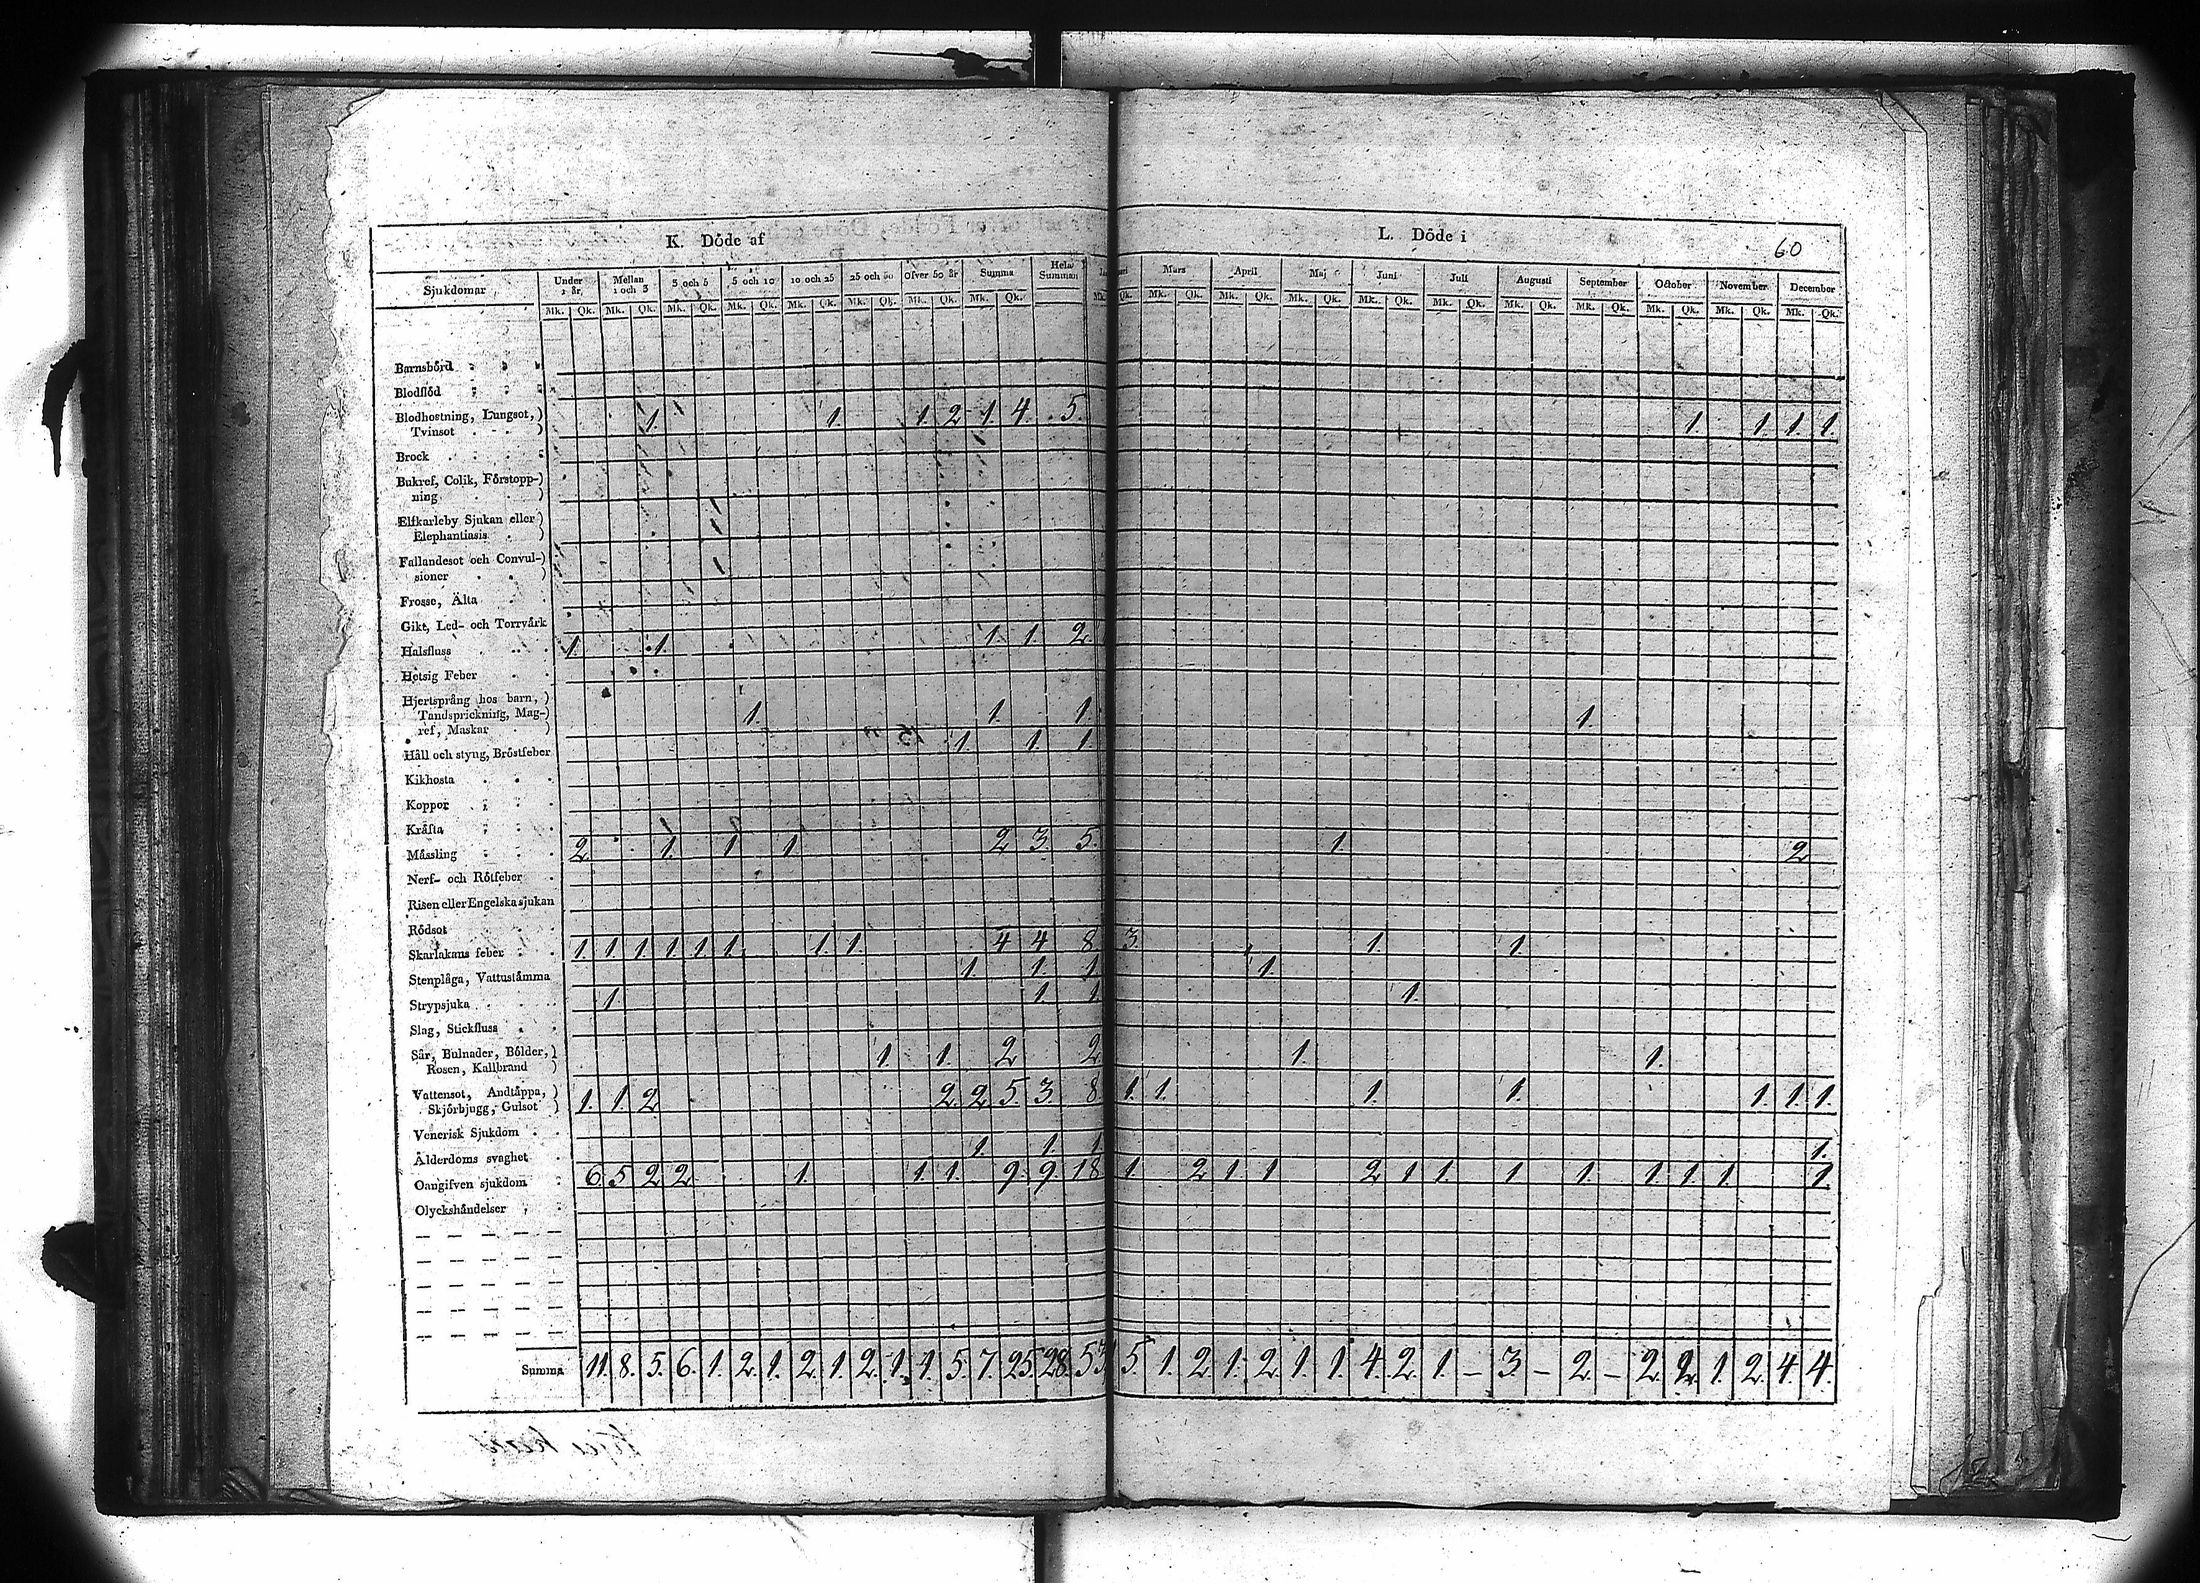 K. Döde af
L. Döde i
60
Sjukdomar Under 1 år, Mellan 1 och 3 3 och 5 5 och 10 10 och 25 25 och 50 Öfver 50 år Summa Hela Summan Mars April Maj Juni Juli Augusti September October November December
Mk. Qk. Mk. Qk. Mk. Qk. Mk. Qk. Mk. Qk. Mk. Qk. Mk. Qk. Mk. Qk. Mk. Qk. Mk. Qk. Mk. Qk. Mk. Qk. Mk. Qk. Mk. Qk. Mk. Qk. Mk. Qk. Mk. Qk. Mk. Qk. Mk. Qk. Mk. Qk.
Barnsbörd
Blodflöd
Blodhostning, Lungsot,)
Tvinsot 1. 1. 1. 2 1. 4. 5. 1. 1. 1. 1.
Brock
Bukref, Colik, Förstopp-)
ning
Elfkarleby Sjukan eller)
Elephantiasis
Fallandesot och Convul-)
sioner
Frosse, Älta
Gikt, Led- och Torrvärk
Halsfluss 1. 1. 1. 1. 2
Hetsig Feber
Hjertsprång hos barn,)
Tandsprickning, Mag-)
ref, Maskar 1. 1. 1. 1.
Håll och styng, Bröstfeber 1. 1. 1.
Kikhosta
Koppor
Kräfta
Mässling 2. 1. 1. 1. 2 3. 5. 1. 2
Nerf- och Rötfeber
Risen eller Engelska sjukan
Rödsot
Skarlakans feber 1. 1. 1. 1. 1. 1. 1. 1. 4 4 8 3. 1. 1.
Stenplåga, Vattustämma 1. 1. 1. 1.
Strypsjuka 1. 1. 1. 1.
Slag, Stickfluss
Sår, Bulnader, Bölder,)
Rosen, Kallbrand ) 1. 1. 2 2 1. 1.
Vattensot, Andtäppa,)
Skjörbjugg, Gulsot ) 1. 1. 2 2. 2. 5. 3. 8 1. 1. 1. 1. 1. 1. 1.
Venerisk Sjukdom
Ålderdoms svaghet 1. 1. 1. 1.
Oangifven sjukdom 6. 5 2 2 1. 1. 1. 9. 9. 18 1. 2 1. 1 2 1 1. 1 1. 1. 1. 1. 1.
Olyckshändelser
Summa 11. 8. 5. 6. 1. 2. 1. 2. 1. 2. 1. 1. 5. 7. 25. 28. 53 5. 1. 2. 1. 2. 1. 1. 4. 2. 1. – 3. – 2. – 2. 2. 1. 2. 4. 4.